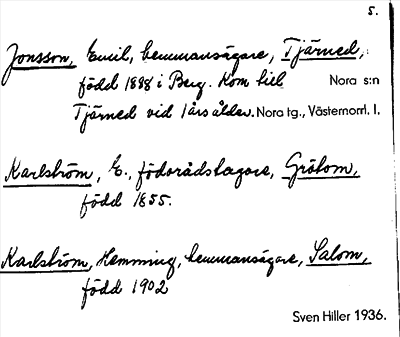 5.
Jonsson, Emil, hemmansägare, Tjärned,
född 1888 i Berg. Kom till Nora s:n
Tjärned vid 1 års ålder. Nora tg., Västernorrl. l.
Karlström, E., födorådstagare, Grötom,
född 1855.
Karlström, Hemming, hemmansägare, Salom,
född 1902
Sven Hiller 1936.